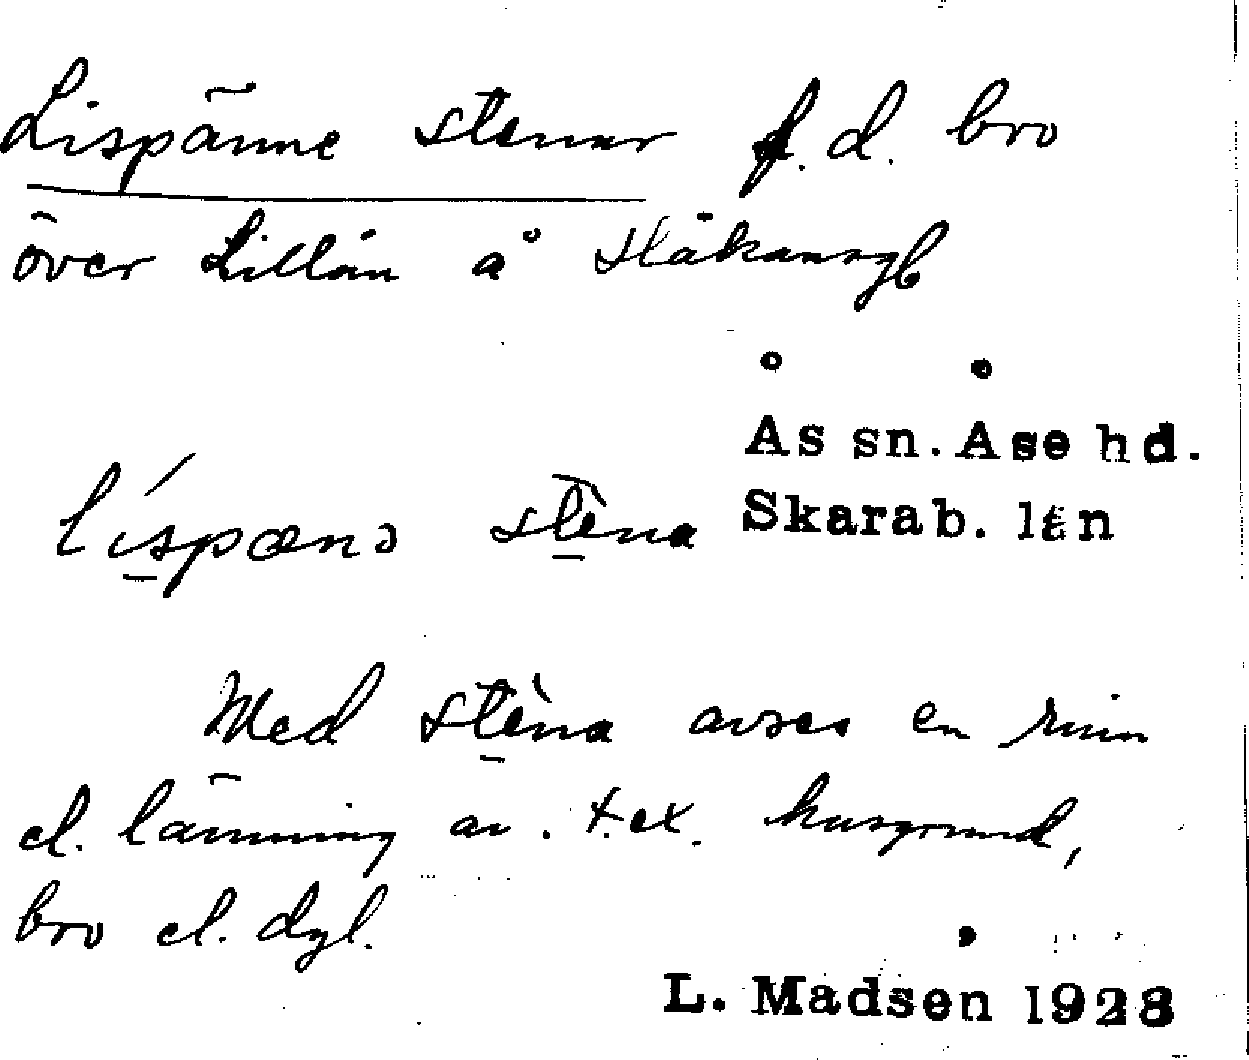 Lispänne stenar f.d. bro
över Lillån å Håkansgb
Ås sn. Åse hd.
Skarab. län
líspænə stèna
Med stèna avses en ruin
el. lämning av. t.ex. husgrund,
bro el. dyl.
L. Madsen 1928